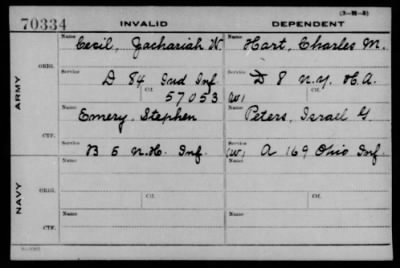 (3-R-8)
70334 INVALID DEPENDENT
Name Name
Cecil, Zachariah W. Hart, Charles M.
ARMY
ORIG.
Service Service
D 84 Ind Inf. D 8 N.Y. H.A.
Ctf. Ctf.
57053 (W)
Name Name
Emery, Stephen Peters, Israel G.
CTF.
Service Service
B 5 N.H. Inf. (W) A 169 Ohio Inf.
Name Name
NAVY
ORIG.
Service Service
Ctf. Ctf.
Name Name
CTF.
Service Service